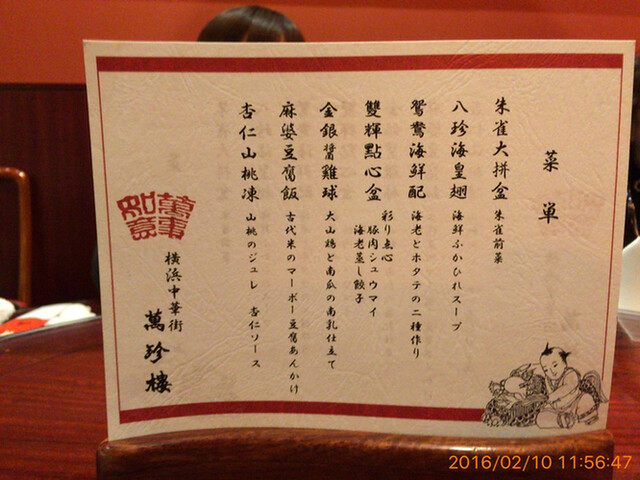 菜単
朱雀大拼盆 朱雀前菜
八珍海皇翅 海鮮ふかひれスープ
鴛鴦海鮮配 海老とホタテの二種作り
雙輝點心盒 彩り点心
豚肉シュウマイ
海老蒸し餃子
金銀醤雞球 大山鶏と南瓜の南乳仕立て
麻婆豆腐飯 古代米のマーボー豆腐あんかけ
杏仁山桃凍 山桃のジュレ 杏仁ソース
萬事如意
横浜中華街
萬珍樓
2016/02/10 11:56:47